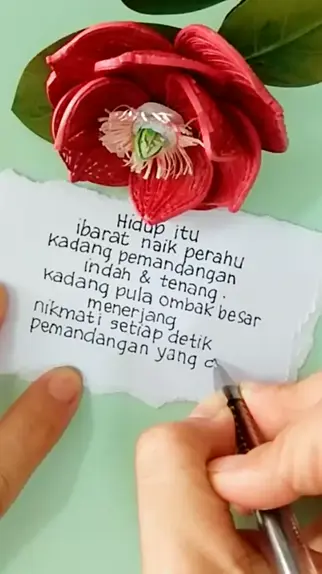 Hidup itu
ibarat naik perahu
kadang pemandangan
indah & tenang.
kadang pula ombak besar
menerjang
nikmati setiap detik
pemandangan yang